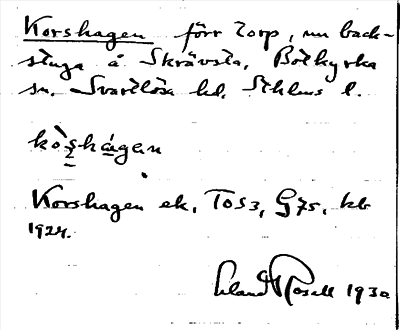 Korshagen förr torp, nu back-
stuga å Skrävsta, Botkyrka
sn. Svartlösa hd. Sthlms l.
kò̱ṣhá̱gen
Korshagen ek, TOS3, G75, kb
1924.
Erland Rosell 1930